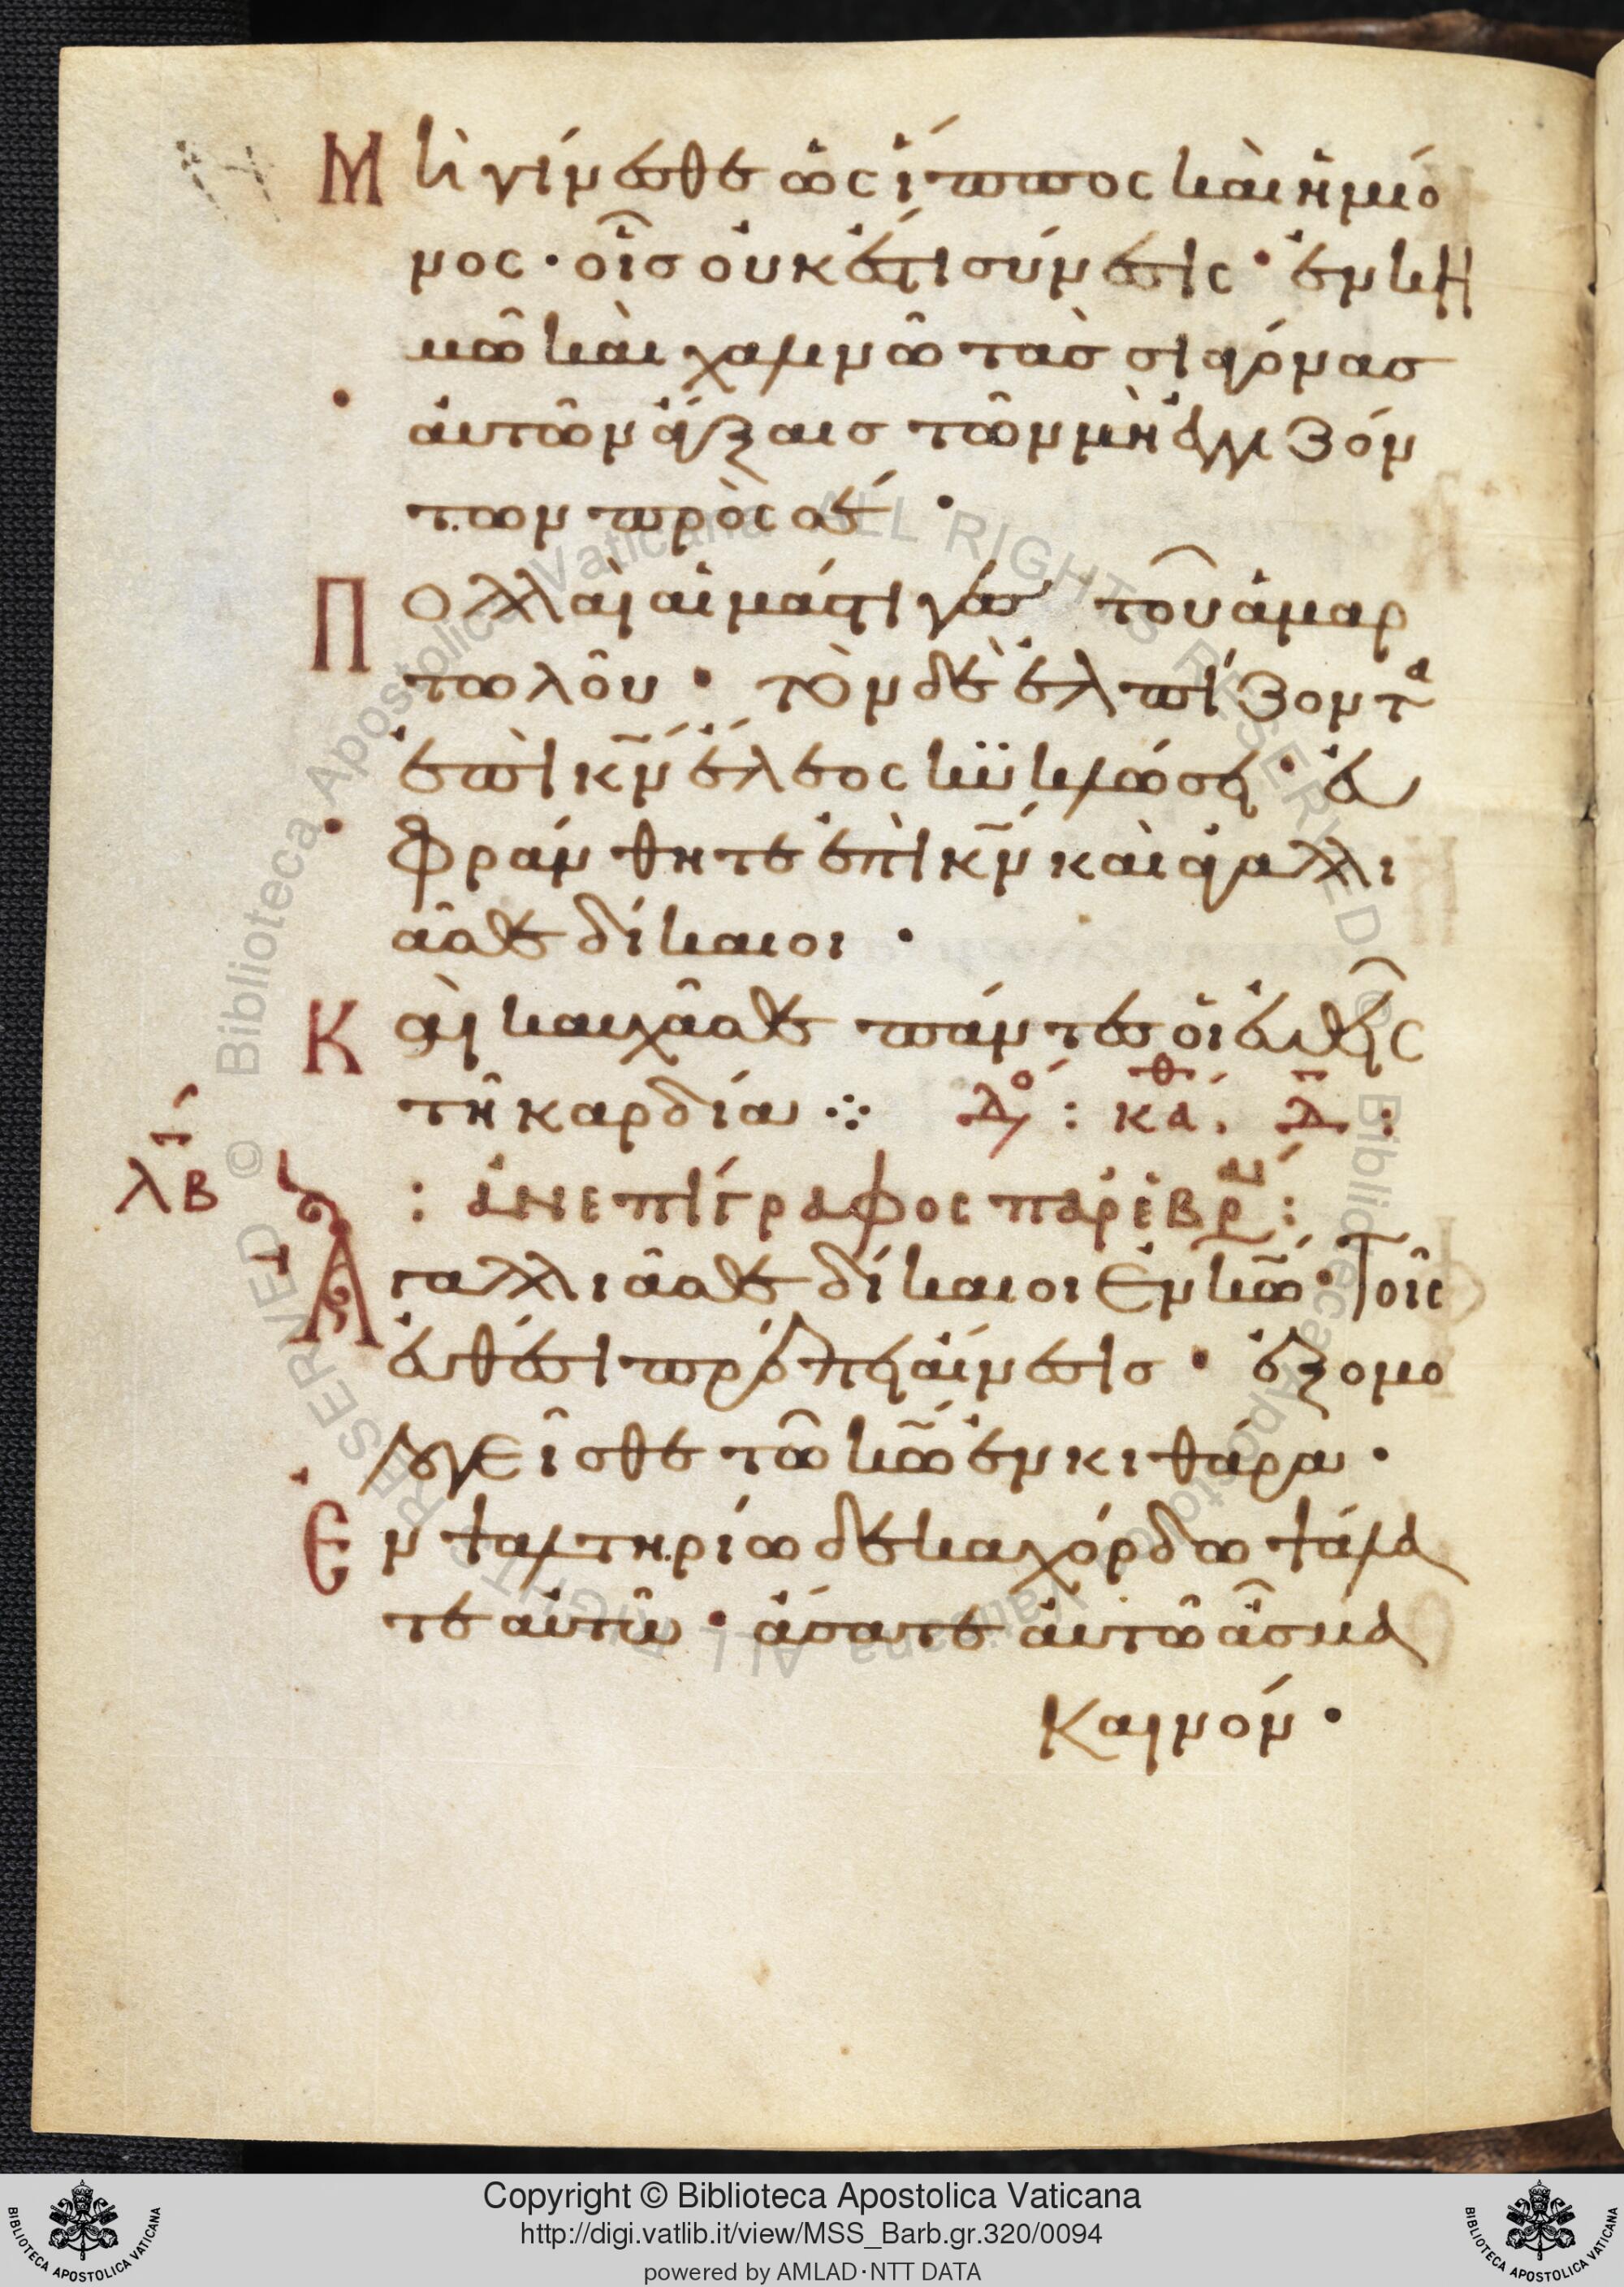 Μὴ γίνεσθε ὡς ἵππος καὶ ἡμίο
νος· οἷσ οὐκ ἔστι σύνεσις· ἐν κη
μῶ καὶ χαλινῶ τὰσ σιαγόνασ
αὐτῶν ἄγξαισ τῶν μὴ ἐγγιζόν
των πρὸς σέ·
Πολλαὶ αἱ μάστιγες τοῦ ἁμαρ
τωλοῦ· τὸν δὲ ἐλπίζοντα
ἐπὶ κ̅ν̅ ἔλεος κυκλώσει· εὐ
φράνθητε ἐπὶ κ̅ν̅ καὶ ἀγαλλι
ᾶσθε δίκαιοι·
Καὶ καυχᾶσθε πάντες οἱ εὐθεῖς
τῆ καρδία ⁘ Δό : κάθ. Δ̅ :
λβ : ἀνεπίγραφος παρ ἑβραί :
Ἀγαλλιᾶσθε δίκαιοι ἐν κ̅ω̅· Τοῖς
εὐθέσι πρέπει αἴνεσισ· ἐξομο
λογεῖσθε τῶ κ̅ω̅ ἐν κιθάρα·
Ἐν ψαλτηρίω δεκαχόρδω ψάλα
τε αὐτῶ· ἄσατε αὐτῶ ἆσμα
καινόν·
Copyright © Biblioteca Apostolica Vaticana
http://digi.vatlib.it/view/MSS_Barb.gr.320/0094
powered by AMLAD·NTT DATA
BIBLIOTECA APOSTOLICA VATICANA
BIBLIOTECA APOSTOLICA VATICANA
© Biblioteca Apostolica Vaticana ALL RIGHTS RESERVED
© Biblioteca Apostolica Vaticana ALL RIGHTS RESERVED